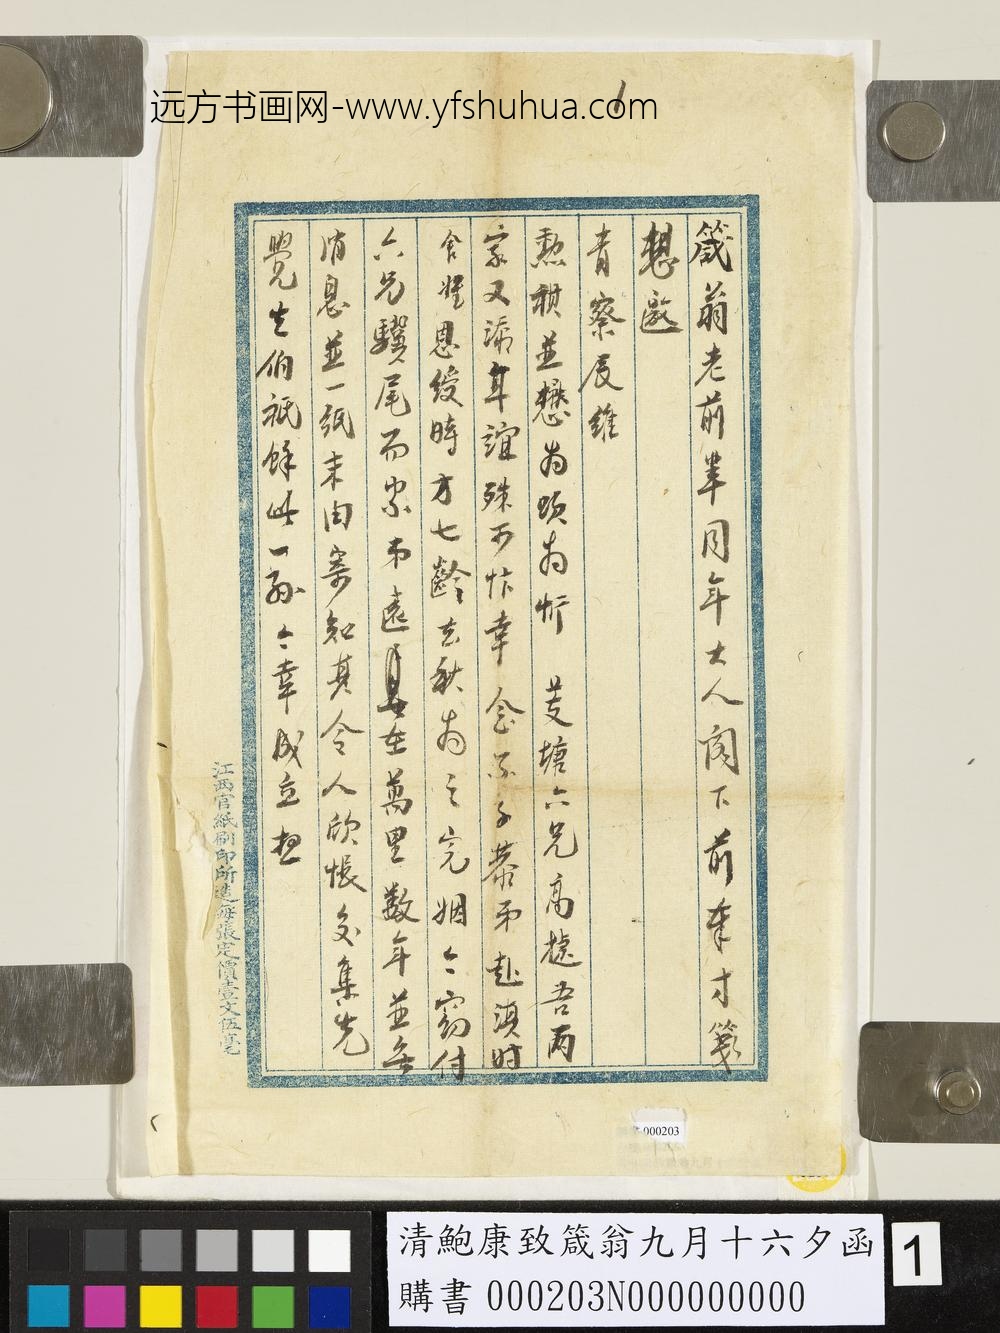 远方书画网-www.yfshuhua.com
箴翁老前輩同年大人閣下前奉寸箋
想邀
青察辰維
勳祺並懋為頌為忻 芰塘六兄高捷吾兩
家又添年誼殊可忭幸 念不子恭弟赴滇時
舍姪恩綬時方七齡去秋為之完姻々窃付
六兄驥尾而家弟遠在萬里数年並無
消息並一紙未由寄知其令人欣悵交集先
覺生伯祇餘此一孫々幸成立想
江西官紙刷印所造每張定價壹文伍毫
000203
清鮑康致箴翁九月十六夕函
購書 000203N000000000
1